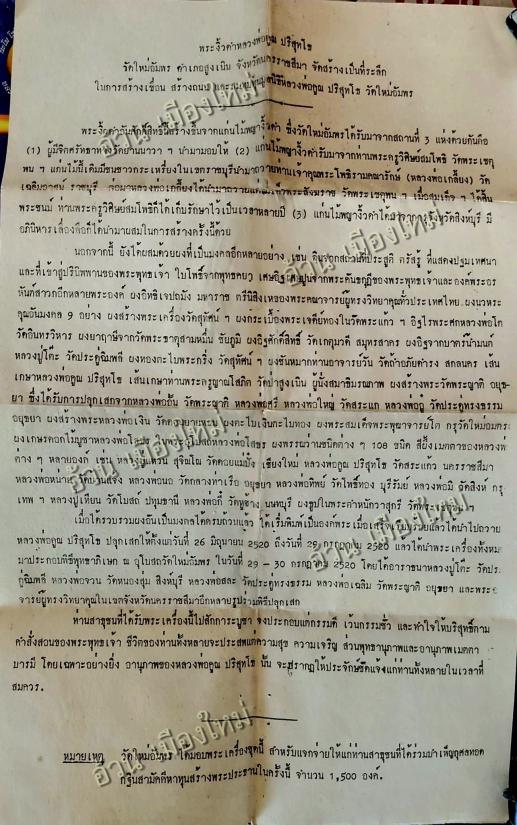 พระงิ้วดำหลวงพ่อคูณ ปริสุทโธ
วัดใหม่อัมพร อำเภอสูงเนิน จังหวัดนครราชสีมา จัดสร้างเป็นที่ระลึก
ในการสร้างเขื่อน สร้างถนน หลวงพ่อคูณ ปริสุทโธ วัดใหม่อัมพร
พระงิ้วดำอันศักดิ์สิทธิ์นี้สร้างขึ้นจากแก่นไม้พญางิ้วดำ ซึ่งวัดใหม่อัมพรได้รับมาจากสถานที่ 3 แห่งด้วยกันคือ
(1) ผู้มีจิตศรัทธาทางวัดย่านนาวา ฯ นำมามอบให้ (2) แก่นไม้พญางิ้วดำรับมาจากท่านพระครูวิศิษย์สมโพธิ วัดพระเชตุ
พน ฯ แก่นไม้นี้เดิมมีชนชาวกระเหรี่ยงในเขตราชบุรีนำมาถวายท่านเจ้าคุณพระโพธิวรามคณารักษ์ (หลวงพ่อเกลี้ยง) วัด
เฉลิมอาสน์ ราชบุรี ต่อมาหลวงพ่อเกลี้ยงได้นำมาถวายแด่สมเด็จพระสังฆราช วัดพระเชตุพน ฯ เมื่อสมเด็จ ฯ ได้สิ้น
พระชนม์ ท่านพระครูวิศิษย์สมโพธิก็ได้เก็บรักษาไว้เป็นเวลาหลายปี (3) แก่นไม้พญางิ้วดำได้มาจากจังหวัดสิงห์บุรี มี
อภินิหารเลื่องลือก็ได้นำมาผสมในการสร้างครั้งนี้ด้วย
นอกจากนี้ ยังได้ผสมด้วยผงที่เป็นมงคลอีกหลายอย่าง เช่น ดินจากสถานที่ประสูติ ตรัสรู้ ที่แสดงปฐมเทศนา
และที่เข้าสู่ปรินิพพานของพระพุทธเจ้า ใบโพธิ์จากพุทธคยา เศษอิฐ พระคันธกุฎีของพระพุทธเจ้าและองค์พระอร
หันต์สาวกอีกหลายพระองค์ ผงอิทธิเจปถมัง มหาราช ตรีนิสิงเหของพระคณาจารย์ผู้ทรงวิทยาคุณทั่วประเทศไทย ผงนวหร
คุณอันมงคล 9 อย่าง ผงสร้างพระเครื่องวัดสุทัศน์ ฯ ผงกระเบื้องพระเจดีย์ทองในวัดพระแก้ว ฯ อิฐโรพระศกหลวงพ่อโต
วัดอินทรวิหาร ผงยาฤาษีจากวัดพระธาตุสามหมื่น ชัยภูมิ ผงอิฐศักดิ์สิทธิ์ วัดเกตุมวดี สมุทรสาคร ผงอิฐจากบาตรน้ำมนต์
หลวงปู่โต๊ะ วัดประดู่ฉิมพลี ผงทองตะไบพระกริ่ง วัดสุทัศน์ ฯ ผงชันหมากท่านอาจารย์วัน วัดถ้ำอภัยดำรง สกลนคร เส้น
เกษาหลวงพ่อคูณ ปริสุทโธ เส้นเกษาท่านพระครูญาณโสภิต วัดป่าสูงเนิน ผู้นั่งสมาธิมรณภาพ ผงสร้างพระวัดพระญาติ อยุธ-
ยา ซึ่งได้รับการปลุกเสกจากหลวงพ่ออั้น วัดพระญาติ หลวงพ่อศรี หลวงพ่อใหญ่ วัดสระแก วัดประดู่ทรงธรรม
อยุธยา ผงสร้างพระหลวงพ่อเงิน วัดดอนยายหอม ผงตะไบเงินตะไบทอง ผงพระสมเด็จพระพุฒาจารย์โต กรุวัดใหม่อมตรส
ผงเกษรดอกไม้บูชาหลวงพ่อโสธร ในพระอุโบสถหลวงพ่อโสธร ผงพรรณว่านชนิดต่าง ๆ 108 ชนิด สีผึ้งเมตตาของหลวงพ่อ
ต่าง ๆ หลายองค์ เช่น หลวงปู่แหวน สุจิณโณ วัดดอยแม่ปั๋ง เชียงใหม่ หลวงพ่อคูณ ปริสุทโธ วัดสระแก้ว นครราชสีมา
กลางท่าเรือ อยุธยา หลวงพ่อทิพย์ วัดโพธิ์ทอง บุรีรัมย์ หลวงพ่อมี วัดสิงห์ กรุ
เทพ ฯ หลวงปู่เทียน วัดโบสถ์ ปทุมธานี นนทบุรี ผงธูปในพระตำหนักวาสุกรี
เมื่อได้รวบรวมผงอันเป็นมงคลได้ครบถ้วนแล้ว ได้เริ่มพิมพ์เป็นองค์พระ เมื่อเสร็จ แล้วได้นำไปถวาย
หลวงพ่อคูณ ปริสุทโธ ปลุกเสกให้ตั้งแต่วันที่ 26 มิถุนายน 2520 ถึงวันที่ 29 กรกฎาคม 2520 แล้วได้นำพระเครื่องทั้งหม
มาประกอบพิธีพุทธาภิเษก ณ อุโบสถวัดใหม่อัมพร ในวันที่ 29 – 30 กรกฎาคม 2520 โดยได้อาราธนาหลวงปู่โต๊ะ วัดปร.
ฉิมพลี หลวงพ่อจวน วัดหนองสุ่ม สิงห์บุรี หลวงพ่อสละ วัดประดู่ทรงธรรม หลวงพ่อเฉลิม วัดพระญาติ อยุธยา และพระ
จารย์ผู้ทรงวิทยาคุณในเขตจังหวัดนครราชสีมาอีกหลายรูปร่วมพิธีปลุกเสก
ท่านสาธุชนที่ได้รับพระเครื่องนี้ไปสักการะบูชา จงประกอบแต่กรรมดี เว้นกรรมชั่ว และทำใจให้บริสุทธิ์ตาม
คำสั่งสอนของพระพุทธเจ้า ชีวิตของท่านทั้งหลายจะประสพแต่ความสุข ความเจริญ ส่วนพุทธานุภาพและอานุภาพเมตตา
บารมี โดยเฉพาะอย่างยิ่ง อานุภาพของหลวงพ่อคูณ ปริสุทโธ นั้น จะปรากฏให้ประจักษ์ชัดแจ้งแก่ท่านทั้งหลายในเวลาที่
สมควร.
หมายเหตุ วัดใหม่อัมพร ได้มอบพระเครื่องชุดนี้ สำหรับแจกจ่ายให้แก่ท่านสาธุชนที่ได้ร่วมบำเพ็ญกุศลทอด
กฐินสามัคคีหาทุนสร้างพระประธานในครั้งนี้ จำนวน 1,500 องค์.
อ้าน เมืองใหม่
อ้าน เมืองใหม่
อ้าน เมืองใหม่
อ้าน เมืองใหม่
อ้าน เมืองใหม่
อ้าน เมืองใหม่